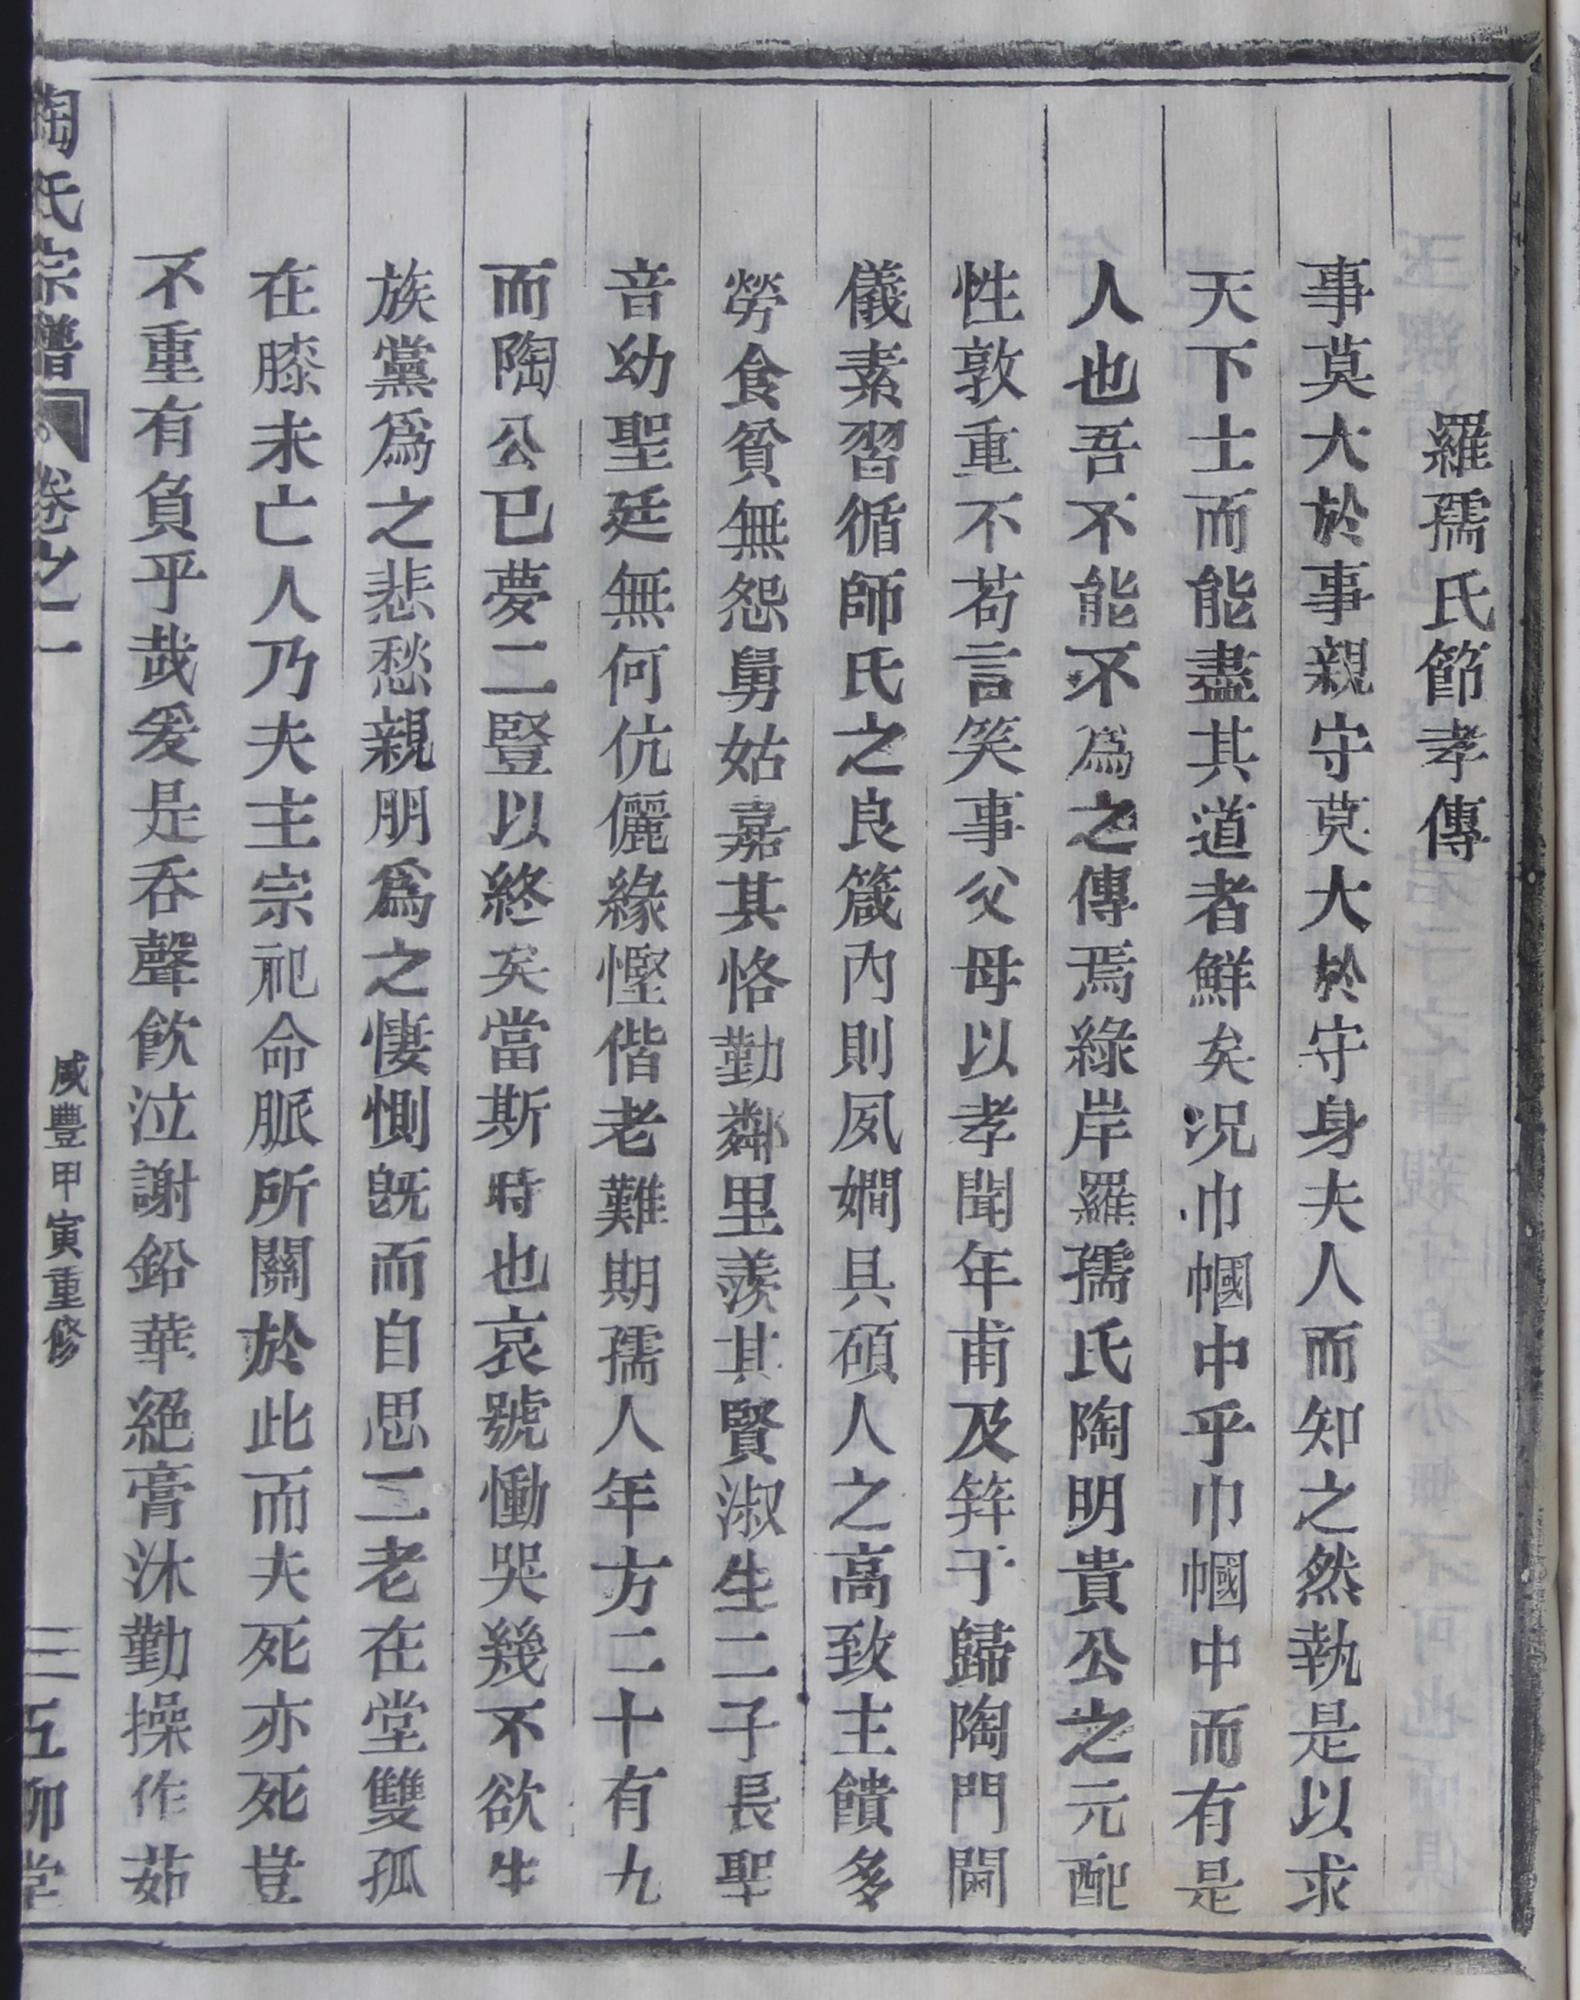 羅孺氏節孝傳
事莫大於事親守莫大於守身夫人而知之然執是以求
天下士而能盡其道者鮮矣况巾幗中乎巾幗中而有是
人也吾不能不為之傳焉綠岸羅孺氏陶明貴公之元配
性敦重不苟言笑事父母以孝聞年甫及笄于歸陶門閫
儀素習循師氏之良箴內則夙嫻具碩人之高致主饋多
勞食貧無怨舅姑嘉其恪勤鄰里羨其賢淑生二子長聖
音幼聖廷無何伉儷緣慳偕老難期孺人年方二十有九
而陶公已夢二豎以終矣當斯時也哀號慟哭幾不欲生
族黨爲之悲愁親朋爲之悽惻旣而自思二老在堂雙孤
在膝未亡人乃夫主宗祀命脈所關於此而夫死亦死豈
不重有負乎哉爰是吞聲飲泣謝鉛華絕膏沐勤操作茹
陶氏宗譜 卷之一 咸豐甲寅重修 三 五柳堂